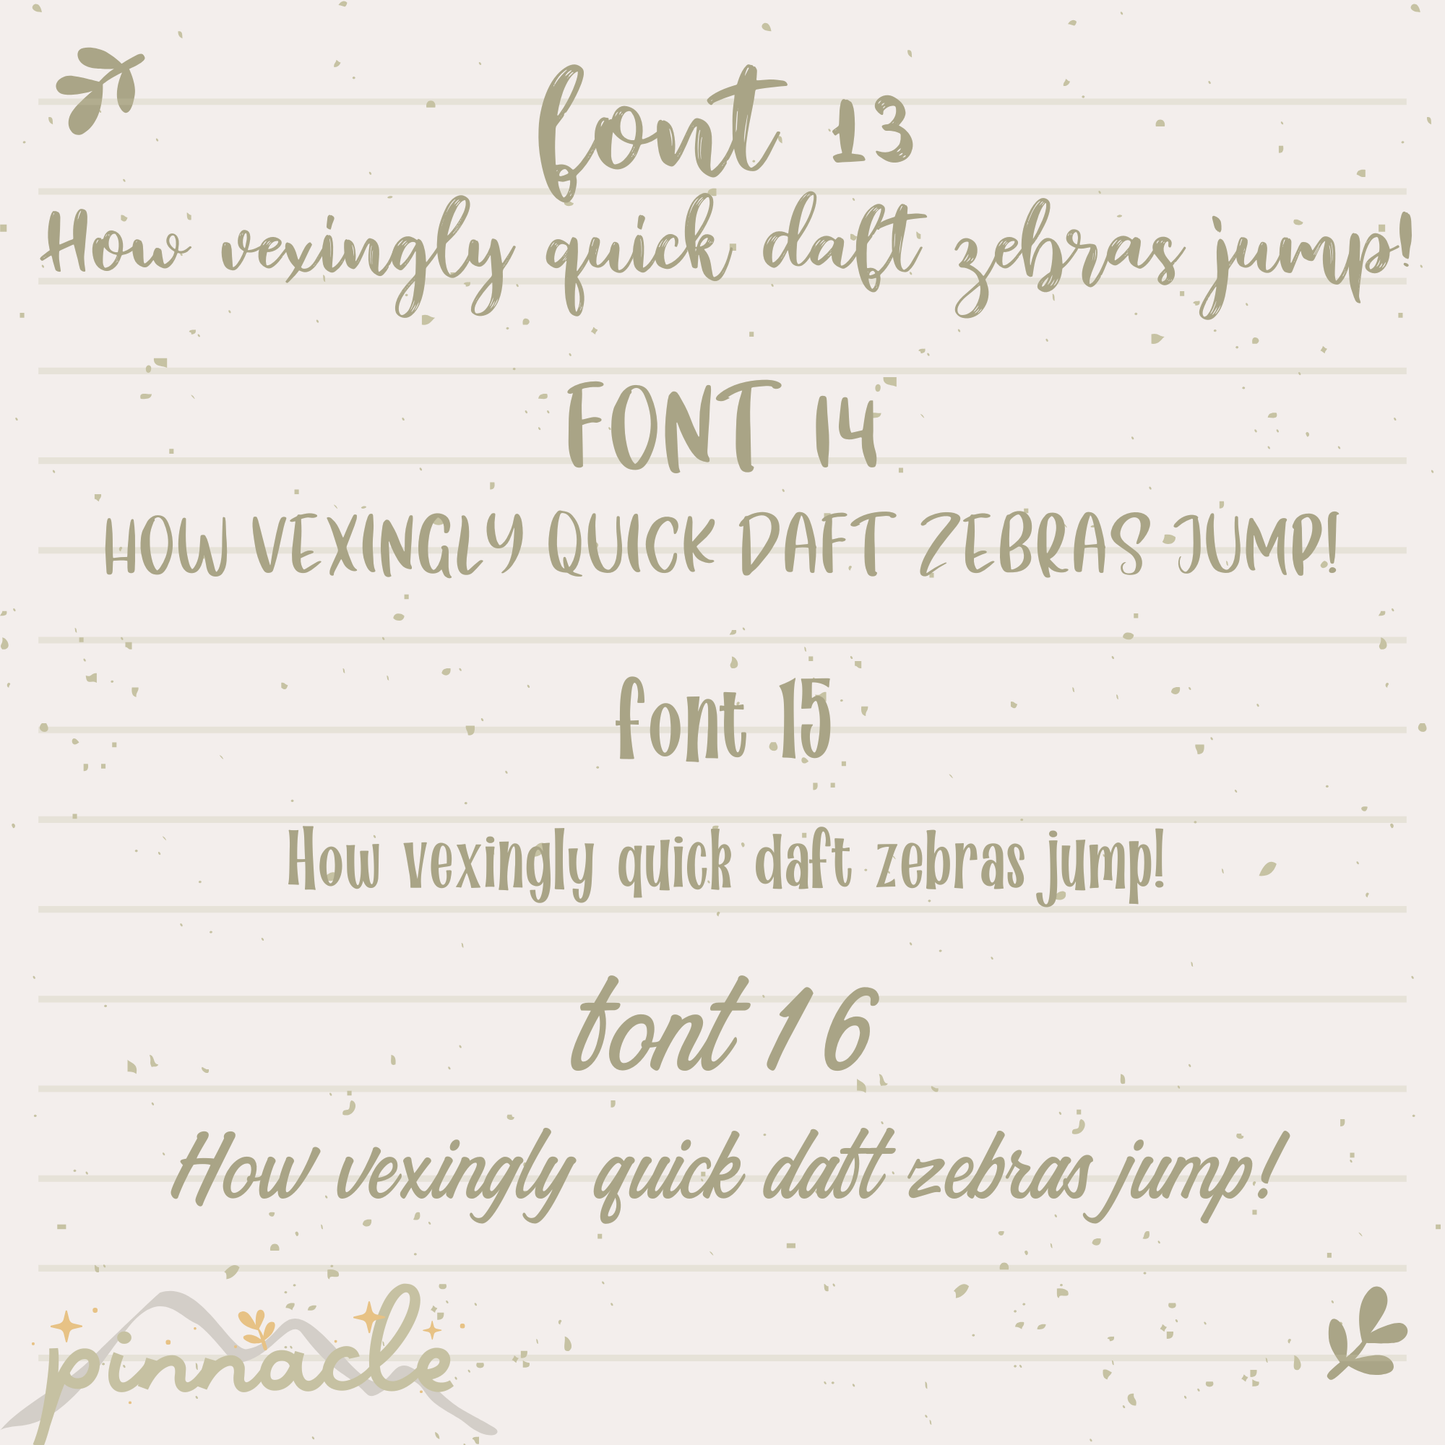 font 13
How vexingly quick daft zebras jump!
FONT 14
HOW VEXINGLY QUICK DAFT ZEBRAS JUMP!
font 15
How vexingly quick daft zebras jump!
font 16
How vexingly quick daft zebras jump!
pinnacle